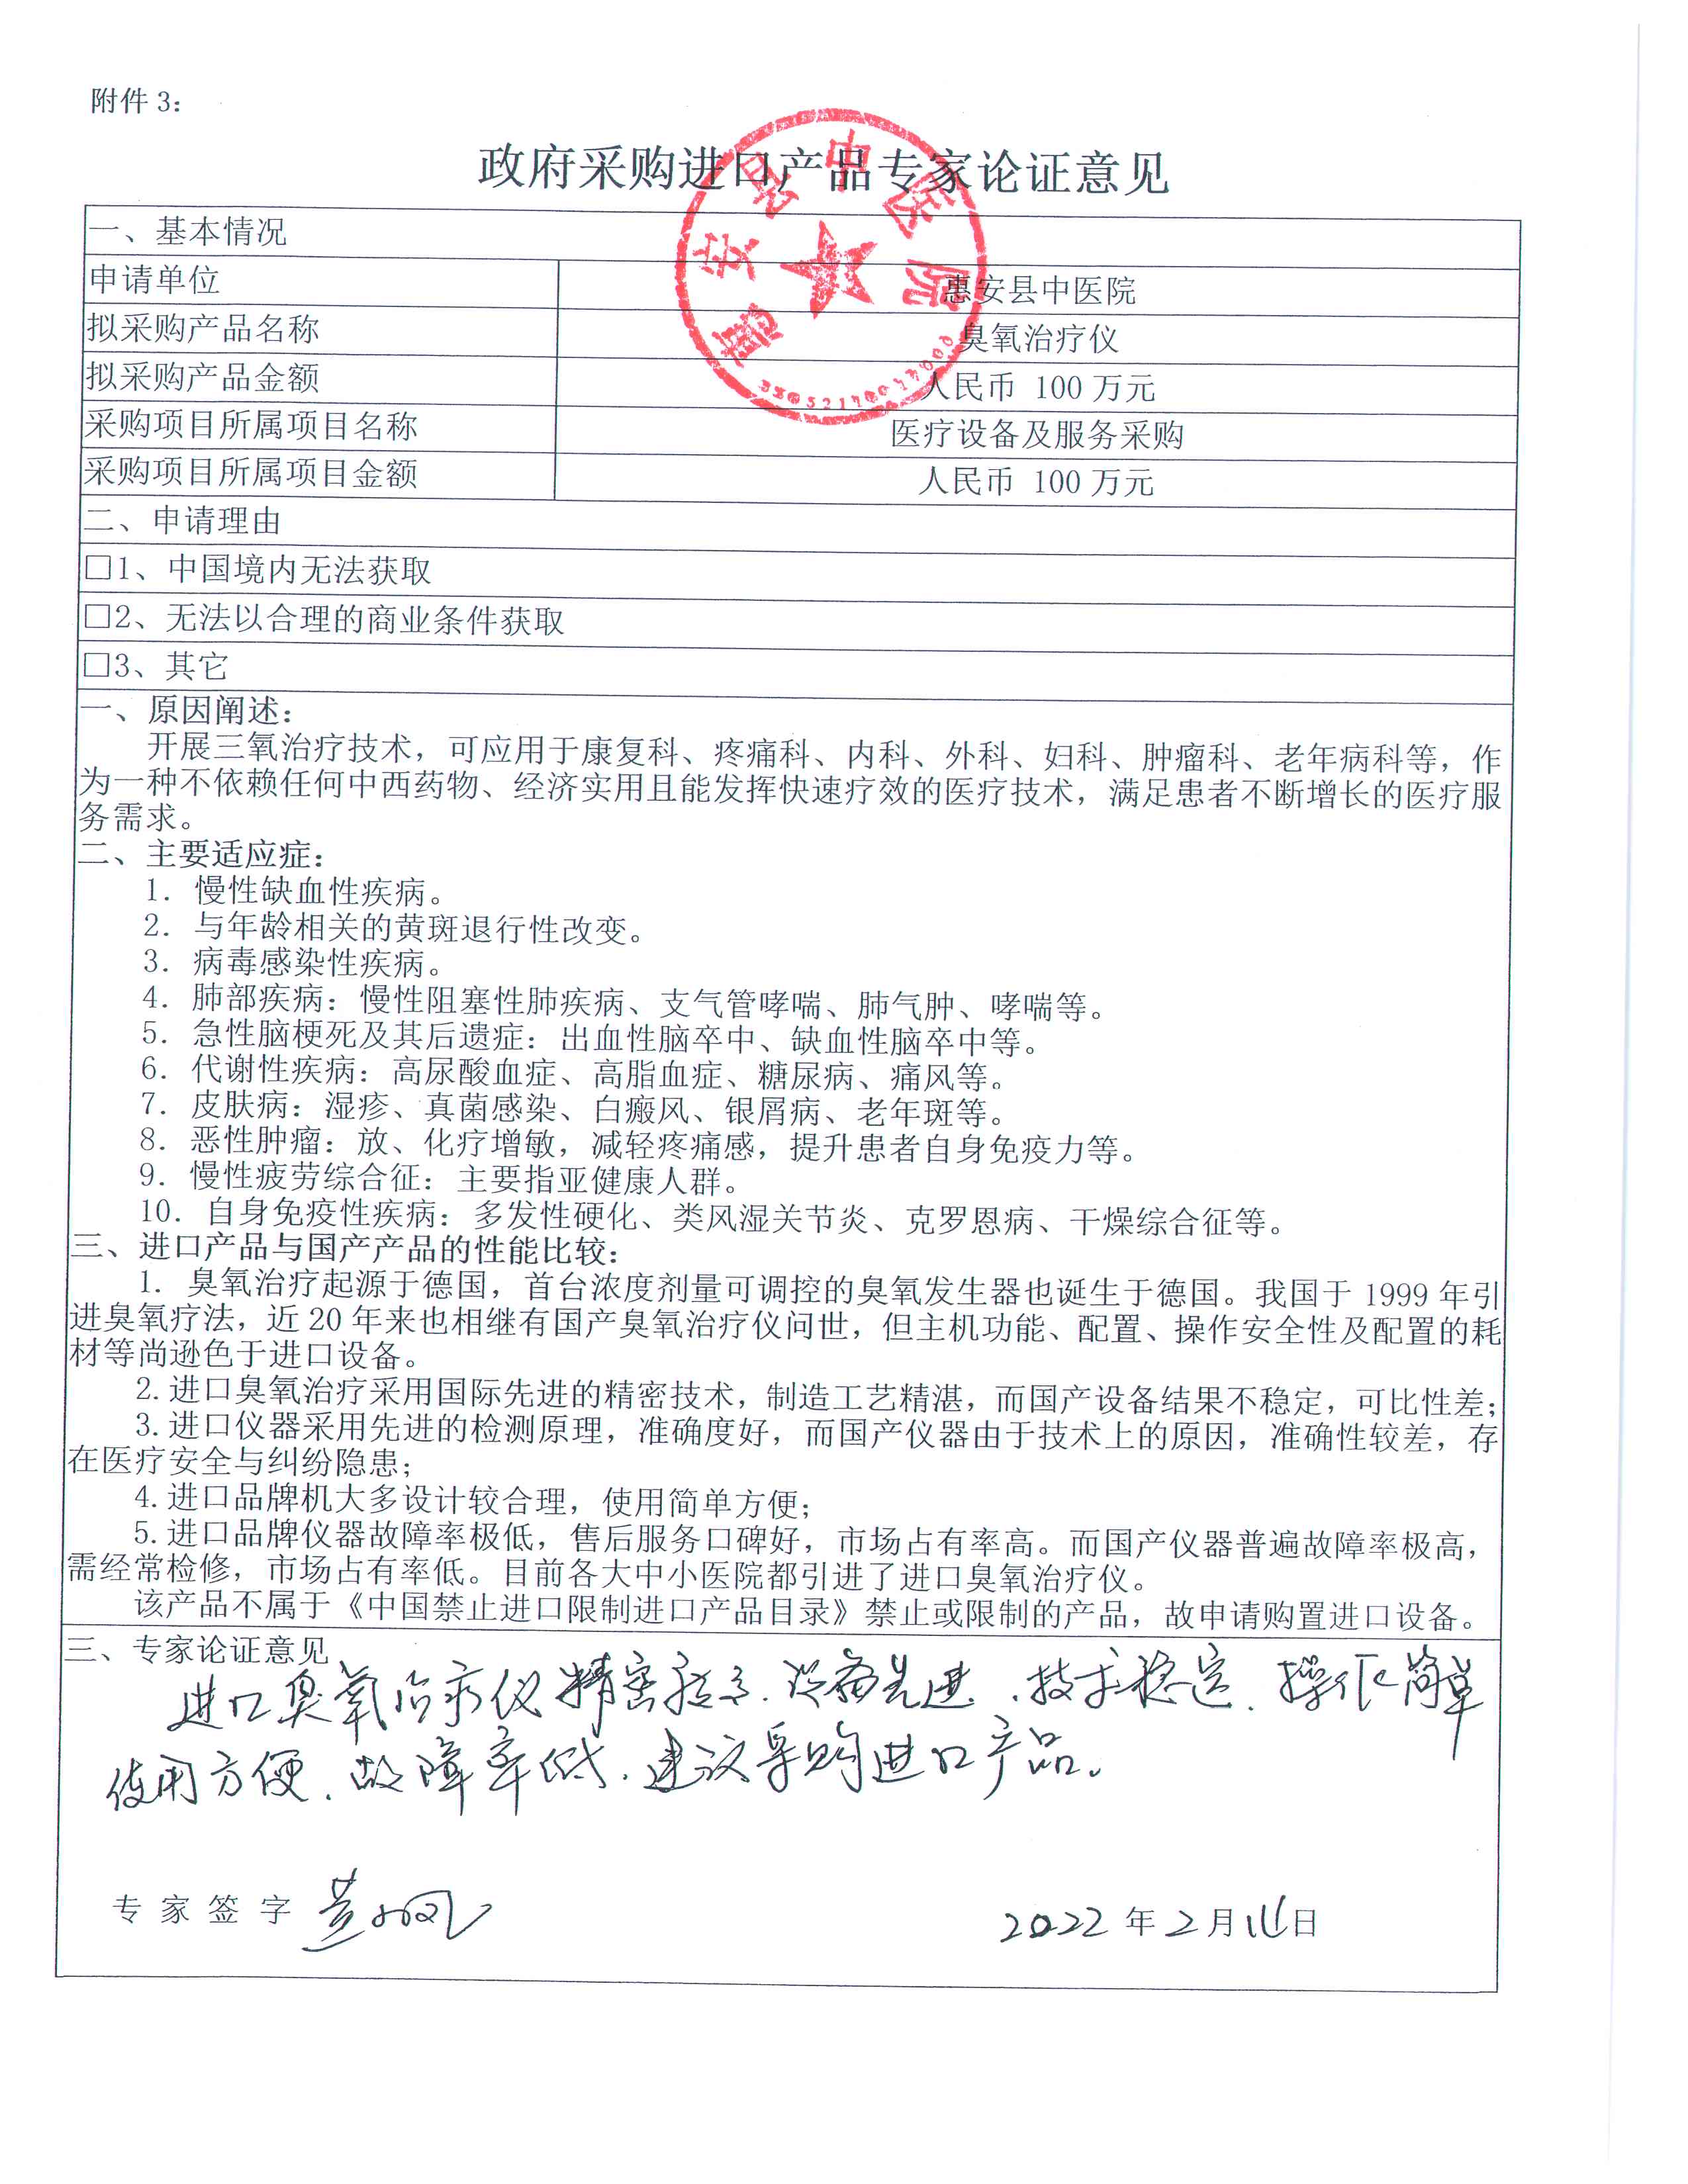 附件 3：
政府采购进口产品专家论证意见
一、基本情况
申请单位 惠安县中医院
拟采购产品名称 臭氧治疗仪
拟采购产品金额 人民币 100 万元
采购项目所属项目名称 医疗设备及服务采购
采购项目所属项目金额 人民币 100 万元
惠安县中医院
二、申请理由
□1、中国境内无法获取
□2、无法以合理的商业条件获取
□3、其它
一、原因阐述：
开展三氧治疗技术，可应用于康复科、疼痛科、内科、外科、妇科、肿瘤科、老年病科等，作
为一种不依赖任何中西药物、经济实用且能发挥快速疗效的医疗技术，满足患者不断增长的医疗服
务需求。
二、主要适应症：
1. 慢性缺血性疾病。
2. 与年龄相关的黄斑退行性改变。
3. 病毒感染性疾病。
4. 肺部疾病：慢性阻塞性肺疾病、支气管哮喘、肺气肿、哮喘等。
5. 急性脑梗死及其后遗症：出血性脑卒中、缺血性脑卒中等。
6. 代谢性疾病：高尿酸血症、高脂血症、糖尿病、痛风等。
7. 皮肤病：湿疹、真菌感染、白癜风、银屑病、老年斑等。
8. 恶性肿瘤：放、化疗增敏，减轻疼痛感，提升患者自身免疫力等。
9. 慢性疲劳综合征：主要指亚健康人群。
10. 自身免疫性疾病：多发性硬化、类风湿关节炎、克罗恩病、干燥综合征等。
三、进口产品与国产产品的性能比较：
1. 臭氧治疗起源于德国，首台浓度剂量可调控的臭氧发生器也诞生于德国。我国于 1999 年引
进臭氧疗法，近 20 年来也相继有国产臭氧治疗仪问世，但主机功能、配置、操作安全性及配置的耗
材等尚逊色于进口设备。
2.进口臭氧治疗采用国际先进的精密技术，制造工艺精湛，而国产设备结果不稳定，可比性差；
3.进口仪器采用先进的检测原理，准确度好，而国产仪器由于技术上的原因，准确性较差，存
在医疗安全与纠纷隐患；
4.进口品牌机大多设计较合理，使用简单方便；
5.进口品牌仪器故障率极低，售后服务口碑好，市场占有率高。而国产仪器普遍故障率极高，
需经常检修，市场占有率低。目前各大中小医院都引进了进口臭氧治疗仪。
该产品不属于《中国禁止进口限制进口产品目录》禁止或限制的产品，故申请购置进口设备。
三、专家论证意见
进口臭氧治疗仪精密 先进、技术稳定、操作简单
使用方便、故障率低、建议采购进口产品。
专 家 签 字
2022 年 2 月 日